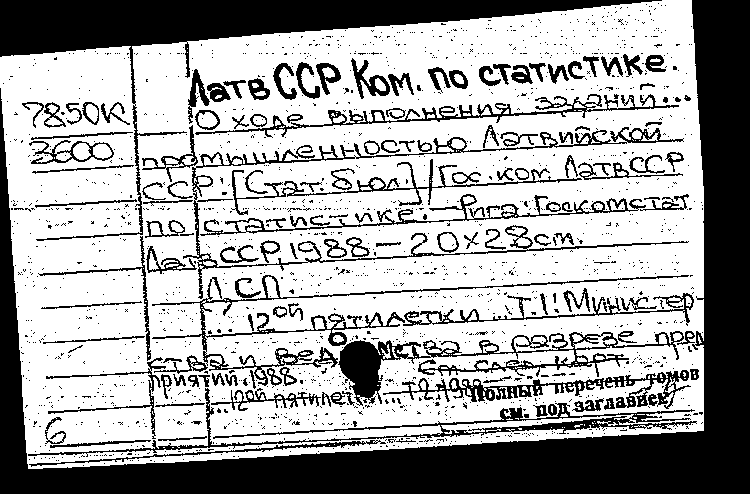 ЛатвССР. Ком. по статистике.
78.50к О ходе выполнения заданий...
3600 промышленностью Латвийской
ССР: [Стат. бюл.] / Гос. ком. ЛатвССР
по статистике. – Рига: Госкомстат
ЛатвССР, 1988. – 20×28см.
ДСП.
... 12ой пятилетки ... Т.1: Министер-
ства и ведомства в разрезе пред
приятий. 1988. См. след. карт.
...12ой пятилетки... Т.2. 1988 Полный перечень томов
см. под заглавием
6